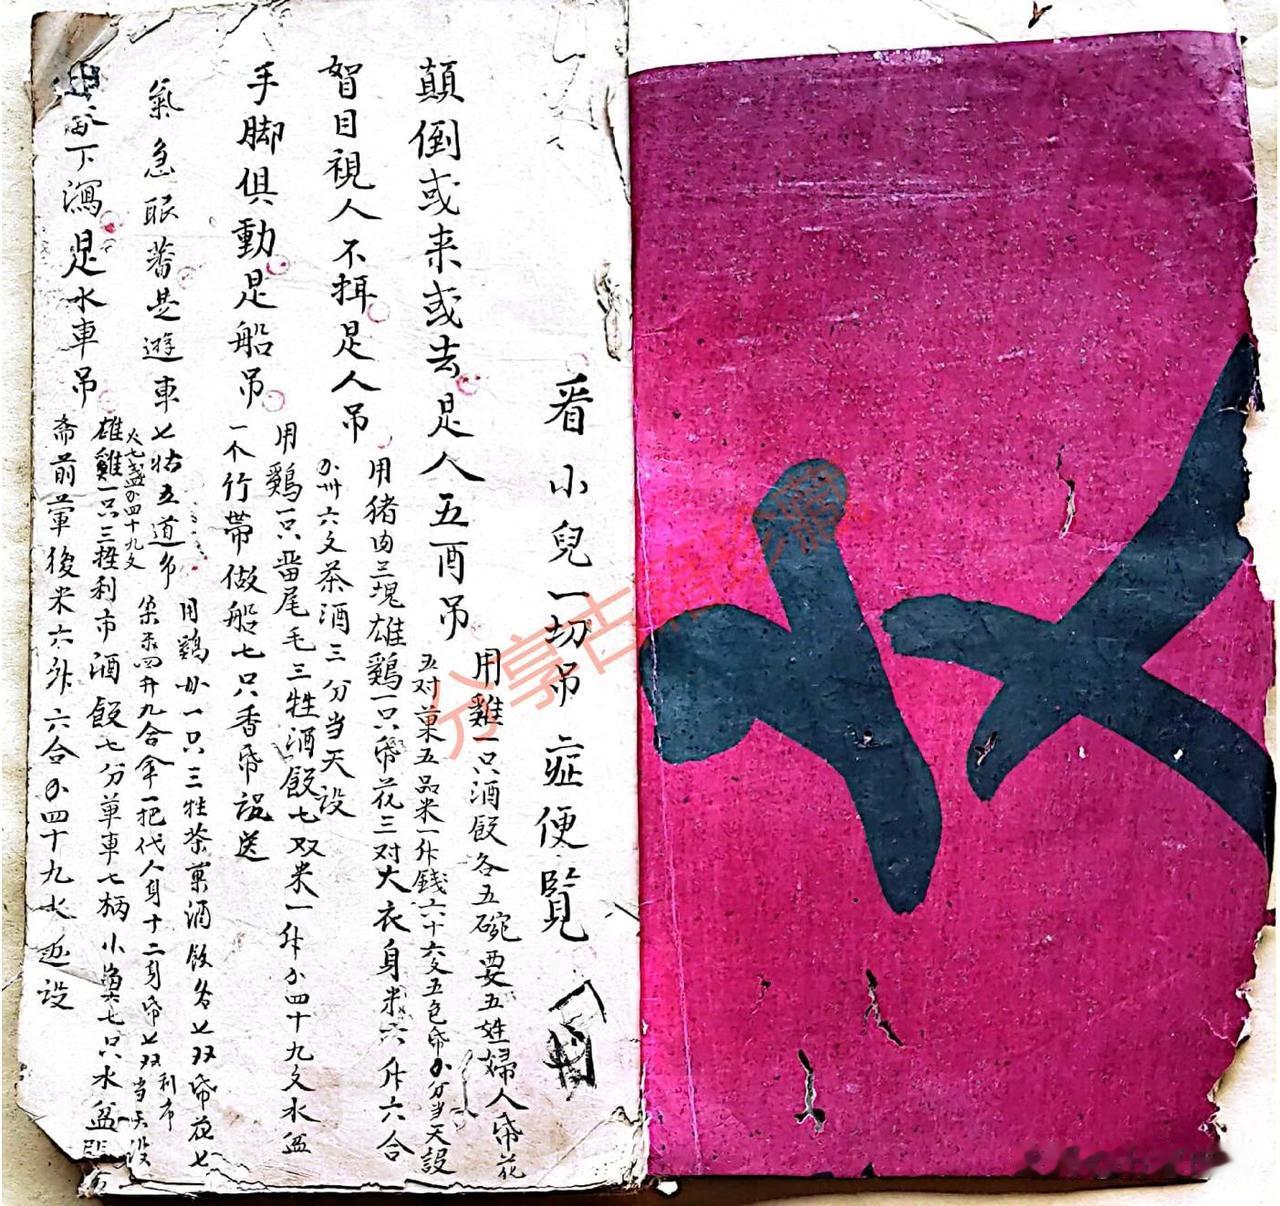 看小兒一切吊症便覽
顛倒或来或去是人五酉吊
用雞一只酒飯各五碗要五姓婦人帋花
五対菓五品米一升錢六十六文五色帋分当天設
智目視人不揖是人吊
用猪肉三塊雄鷄一只帋花三対大衣身米六升六合
卅六文茶酒三分当天设
手脚俱動是船吊
用鷄一只畨尾毛三牲酒飯七双米一升四十九文水盆
一个竹帶做船七只香帋説送
氣急眼蕃是遊車七牯五道
用鷄一只三牲茶菓酒飯各七双帋花七
四升九合拿一把代人身十二身帋七双当天设
利市
下瀉是水車吊
火七盏四十九文
雄雞一只三牲利市酒飯七分車七柄小魚七只水盆
斋前葷後米六升六合四十九文送设
分享古籍珍藏